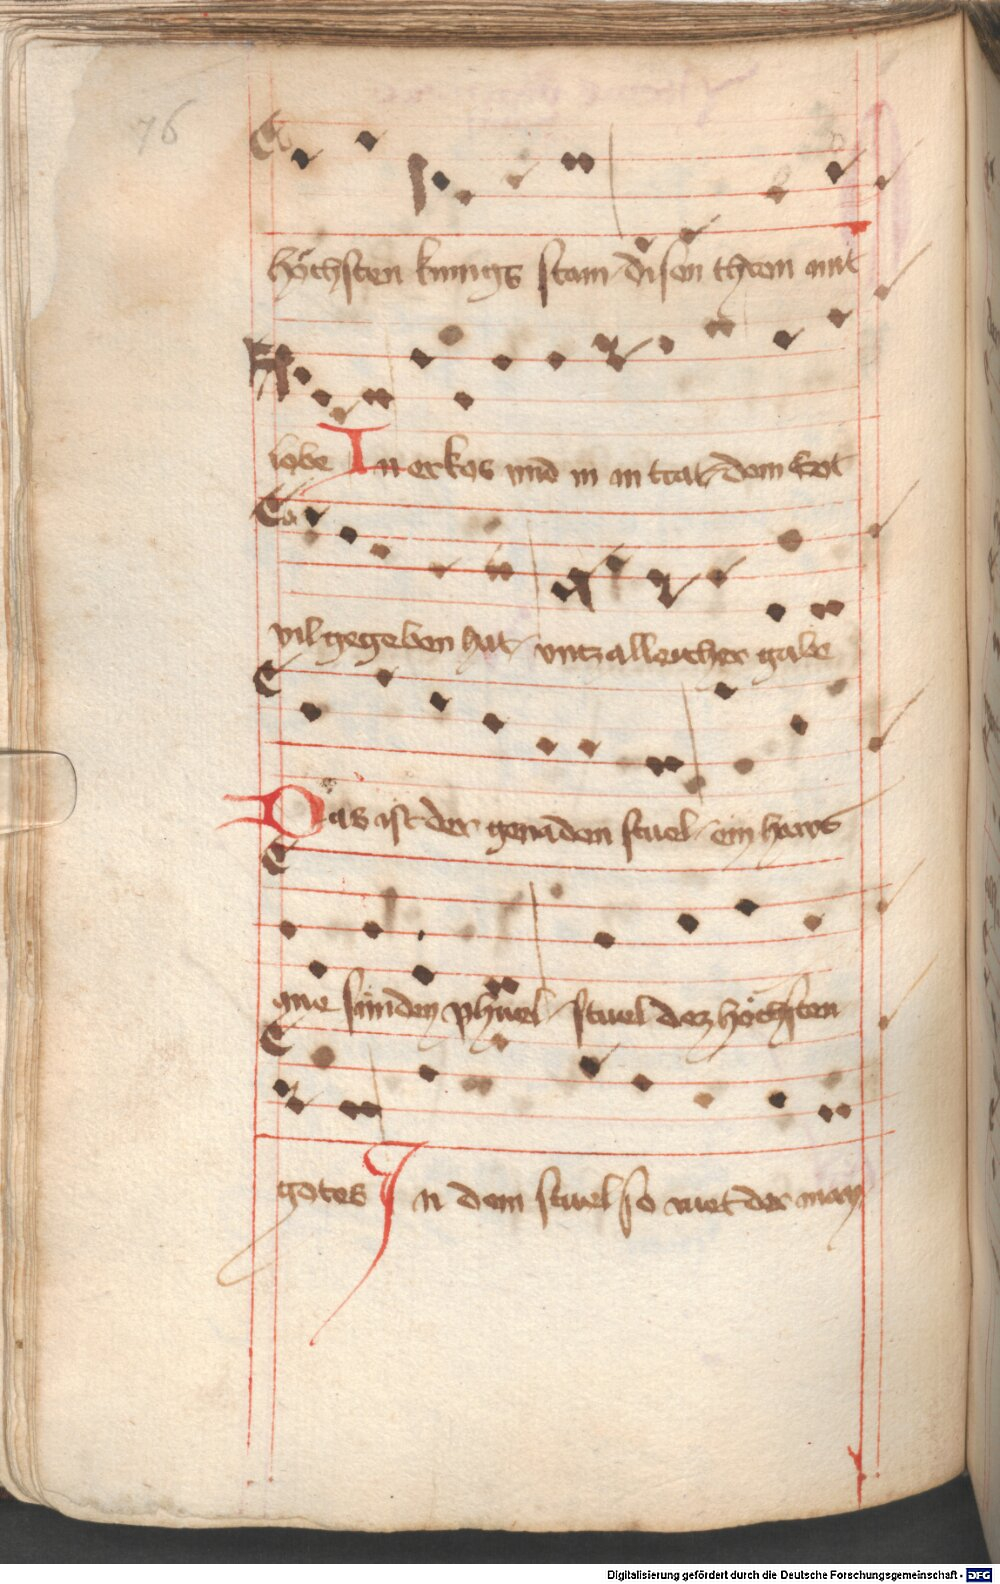 76
höchsten kunigs stam disen thron mit
lobe In erkos vnd in in trat dem Got
vil gegeben hat vntzalleicher gabe
Das ist der genaden stuel ein haws
ane sünden phuel stuel dez höchsten
gotes In dem stuel so ruet der man
Digitalisierung gefördert durch die Deutsche Forschungsgemeinschaft - DFG